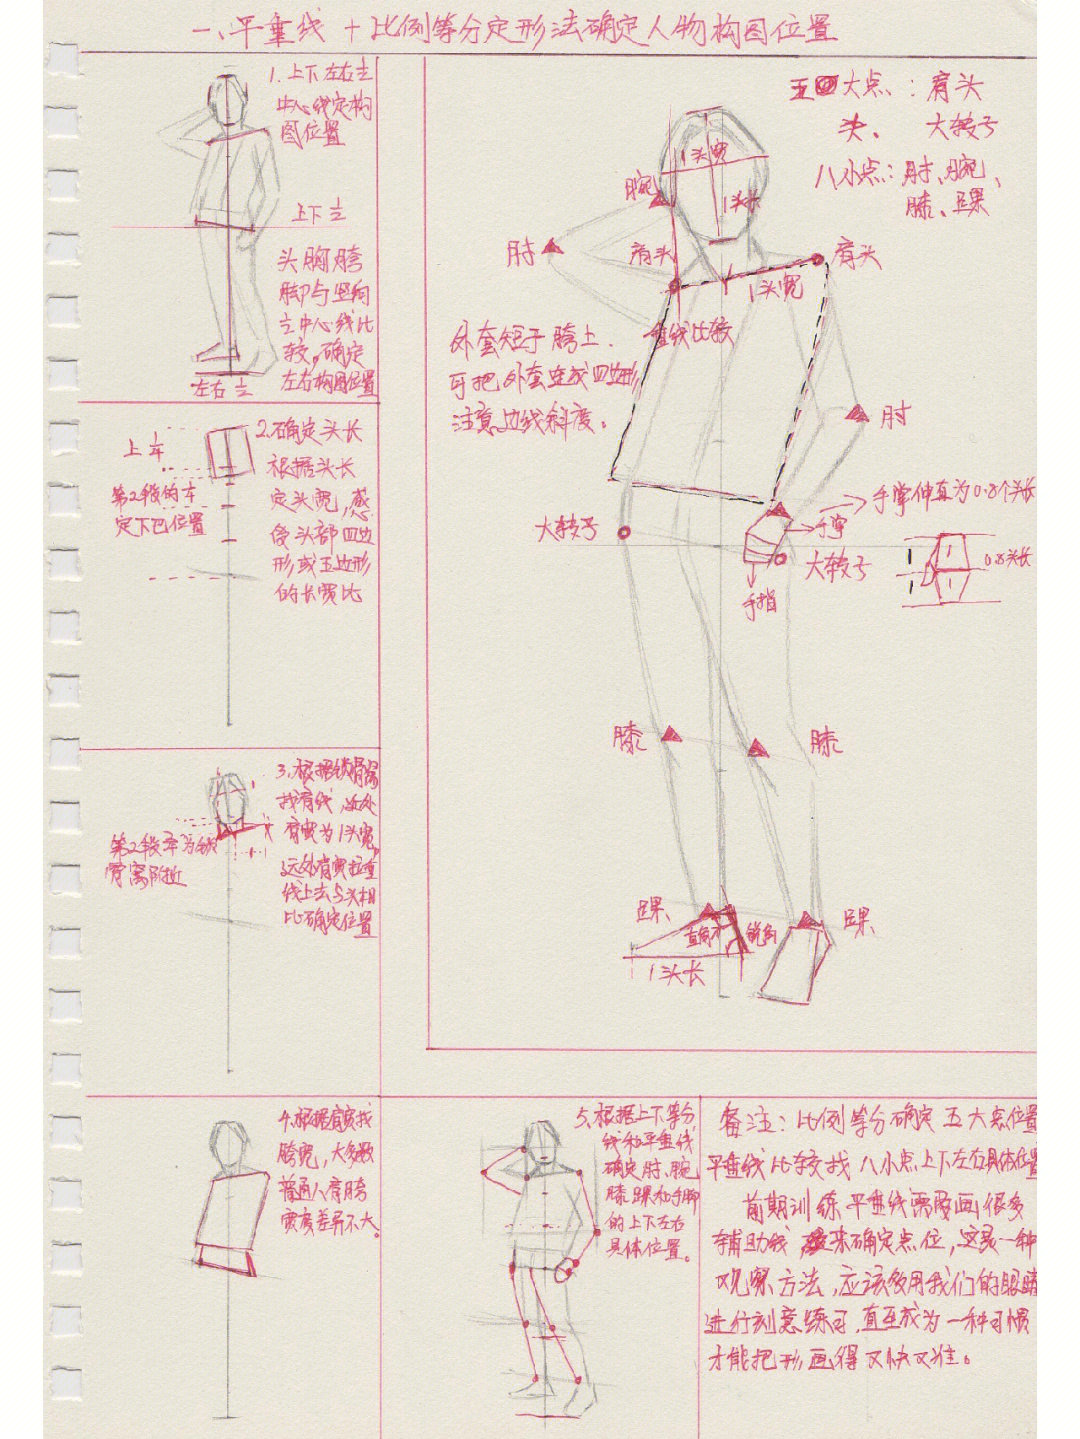 一、平垂线 + 比例等分定形法确定人物构图位置
1. 上下左右½
中心线定构
图位置
上下½
头胸胯
脚与竖向
½中心线比
较。确定
左右构图位置
左右½
2.确定头长
根据头长
定头宽,感
受头部四边
形或五边形
的长宽比
上½
第2段的½
定下巴位置
3.根据锁骨窝
找肩线,近处
肩宽为1头宽。
远处肩宽拉垂
线上去与头相
比确定位置
第2段½为锁
骨窝附近
4.根据肩宽找
胯宽,大多数
普通人肩胯
宽度差异不大。
5.根据上下等分
线和平垂线
确定肘、腕
膝踝和手脚
的上下左右
具体位置。
五大点:肩头
头、 大转子
八小点:肘、腕、
膝、踝
1头宽
腕
1头长
肘
肩头
肩头
1头宽
垂线比较
外套短于胯上.
可把外套连成四边形
注意边线斜度。
肘
手掌伸直为0.8个头长
手掌
大转子
大转子
手指
1
1
0.8头长
膝
膝
踝
踝
直角
锐角
1头长
备注:比例等分确定五大点位置
平垂线比较找八小点上下左右具体位置
前期训练平垂线需要画很多
辅助线来确定点位,这是一种
观察方法,应该多用我们的眼睛
进行刻意练习,直至成为一种习惯
才能把形画得又快又准。